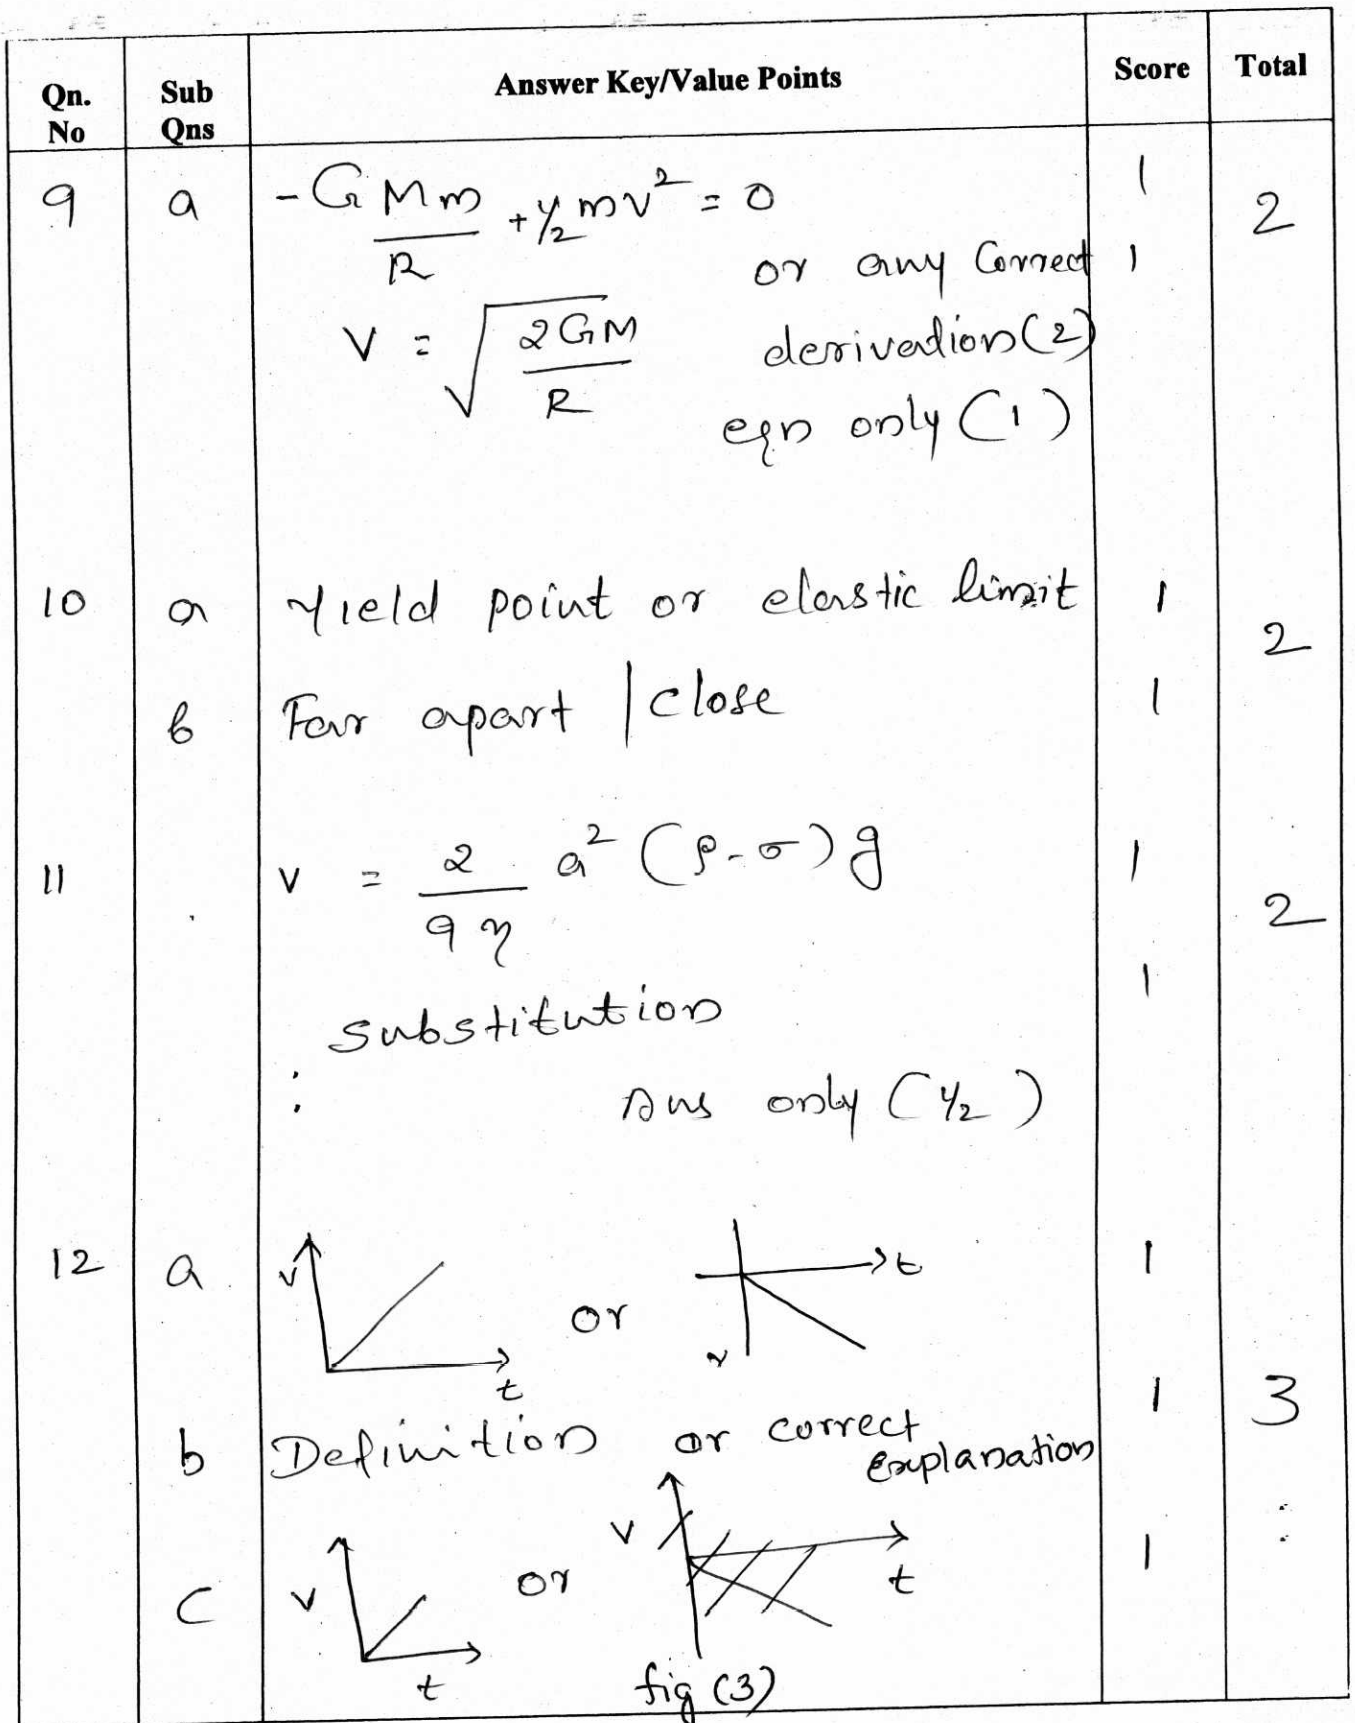 Qn. No | Sub Qns | Answer Key/Value Points | Score | Total
9 a -GMm/R + 1/2 mv² = 0 1 2
or any Correct 1
V = √(2GM/R) derivation (2)
eqn only (1)
10 a Yield point or elastic limit 1
2
b Far apart | close 1
11 V = 2/9η a² (ρ-σ) g 1
2
1
substitution
Ans only (1/2)
12 a V t or t v 1
b Definition or correct explanation 1 3
c V t or V t 1
fig (3)